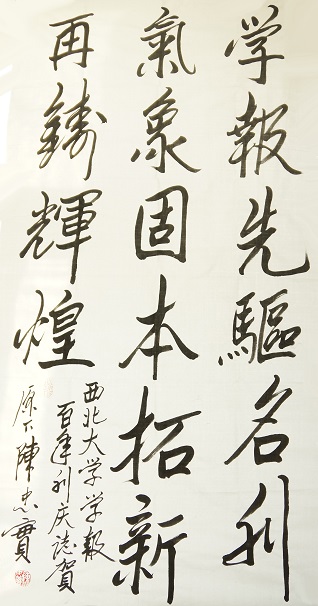 学報先驅名刊
氣象固本拓新
再鑄輝煌
西北大学学報
百年刊庆誌賀
原下陳忠實